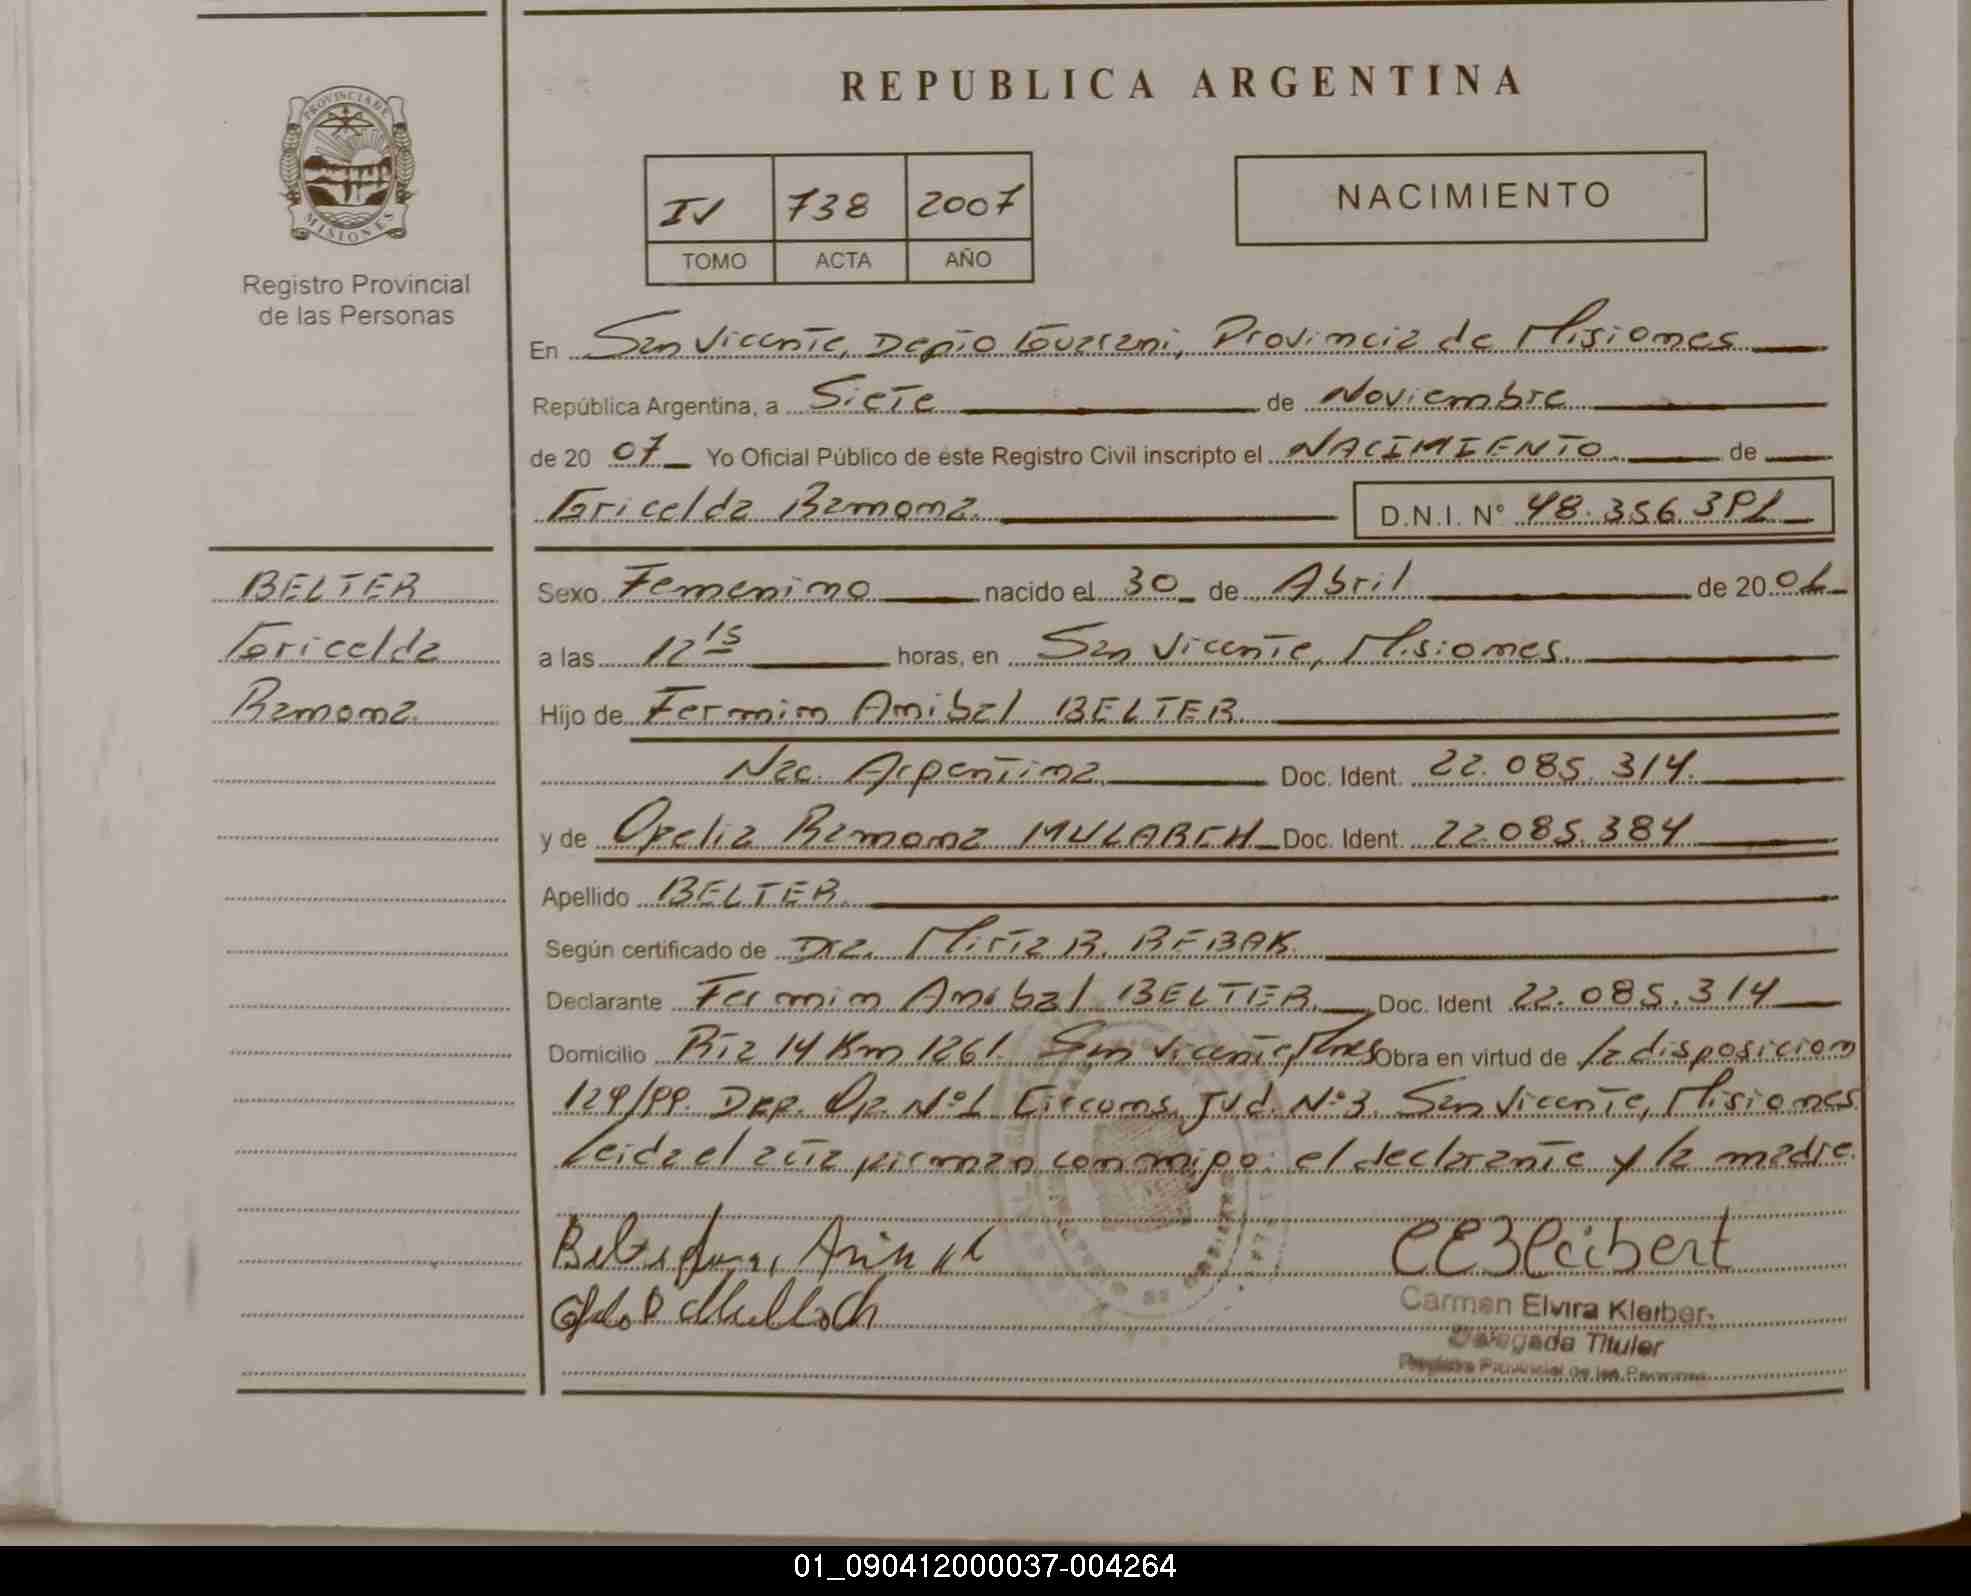 REPUBLICA ARGENTINA
PROVINCIA DE
MISIONES
Registro Provincial
de las Personas
IV 738 2007
TOMO ACTA AÑO
NACIMIENTO
En San Vicente, Depto Guarani, Provincia de Misiones
República Argentina, a Siete de Noviembre
de 20 07 Yo Oficial Público de este Registro Civil inscripto el NACIMIENTO de
Gricelda Ramona D.N.I. N° 48.356.391
BELTER
Gricelda
Ramona
Sexo Femenino nacido el 30 de Abril de 20
a las 12 15 horas, en San Vicente, Misiones.
Hijo de Fermin Anibal BELTER
Nac. Argentina Doc. Ident. 22.085.314.
y de Ofelia Ramona MULARCH Doc. Ident. 22.085.384
Apellido BELTER
Según certificado de Dra. Mirta R. REBAK
Declarante Fermin Anibal BELTER Doc. Ident 22.085.314
Domicilio Rta 14 Km 1261. San Vicente, Mnes Obra en virtud de la disposicion
129/99. Dep. Of. N°1 Circuns. Jud. N°3. San Vicente, Misiones
Leida el acta firman conmigo: el declarante y la madre.
Carmen Elvira Kleiber
Delegada Titular
Registro Provincial de las Personas
01_090412000037-004264